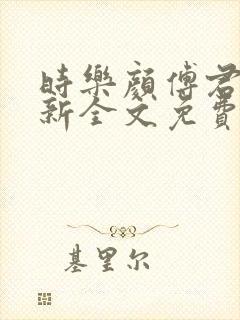 時樂顏傅君
新全文免費
基里尔